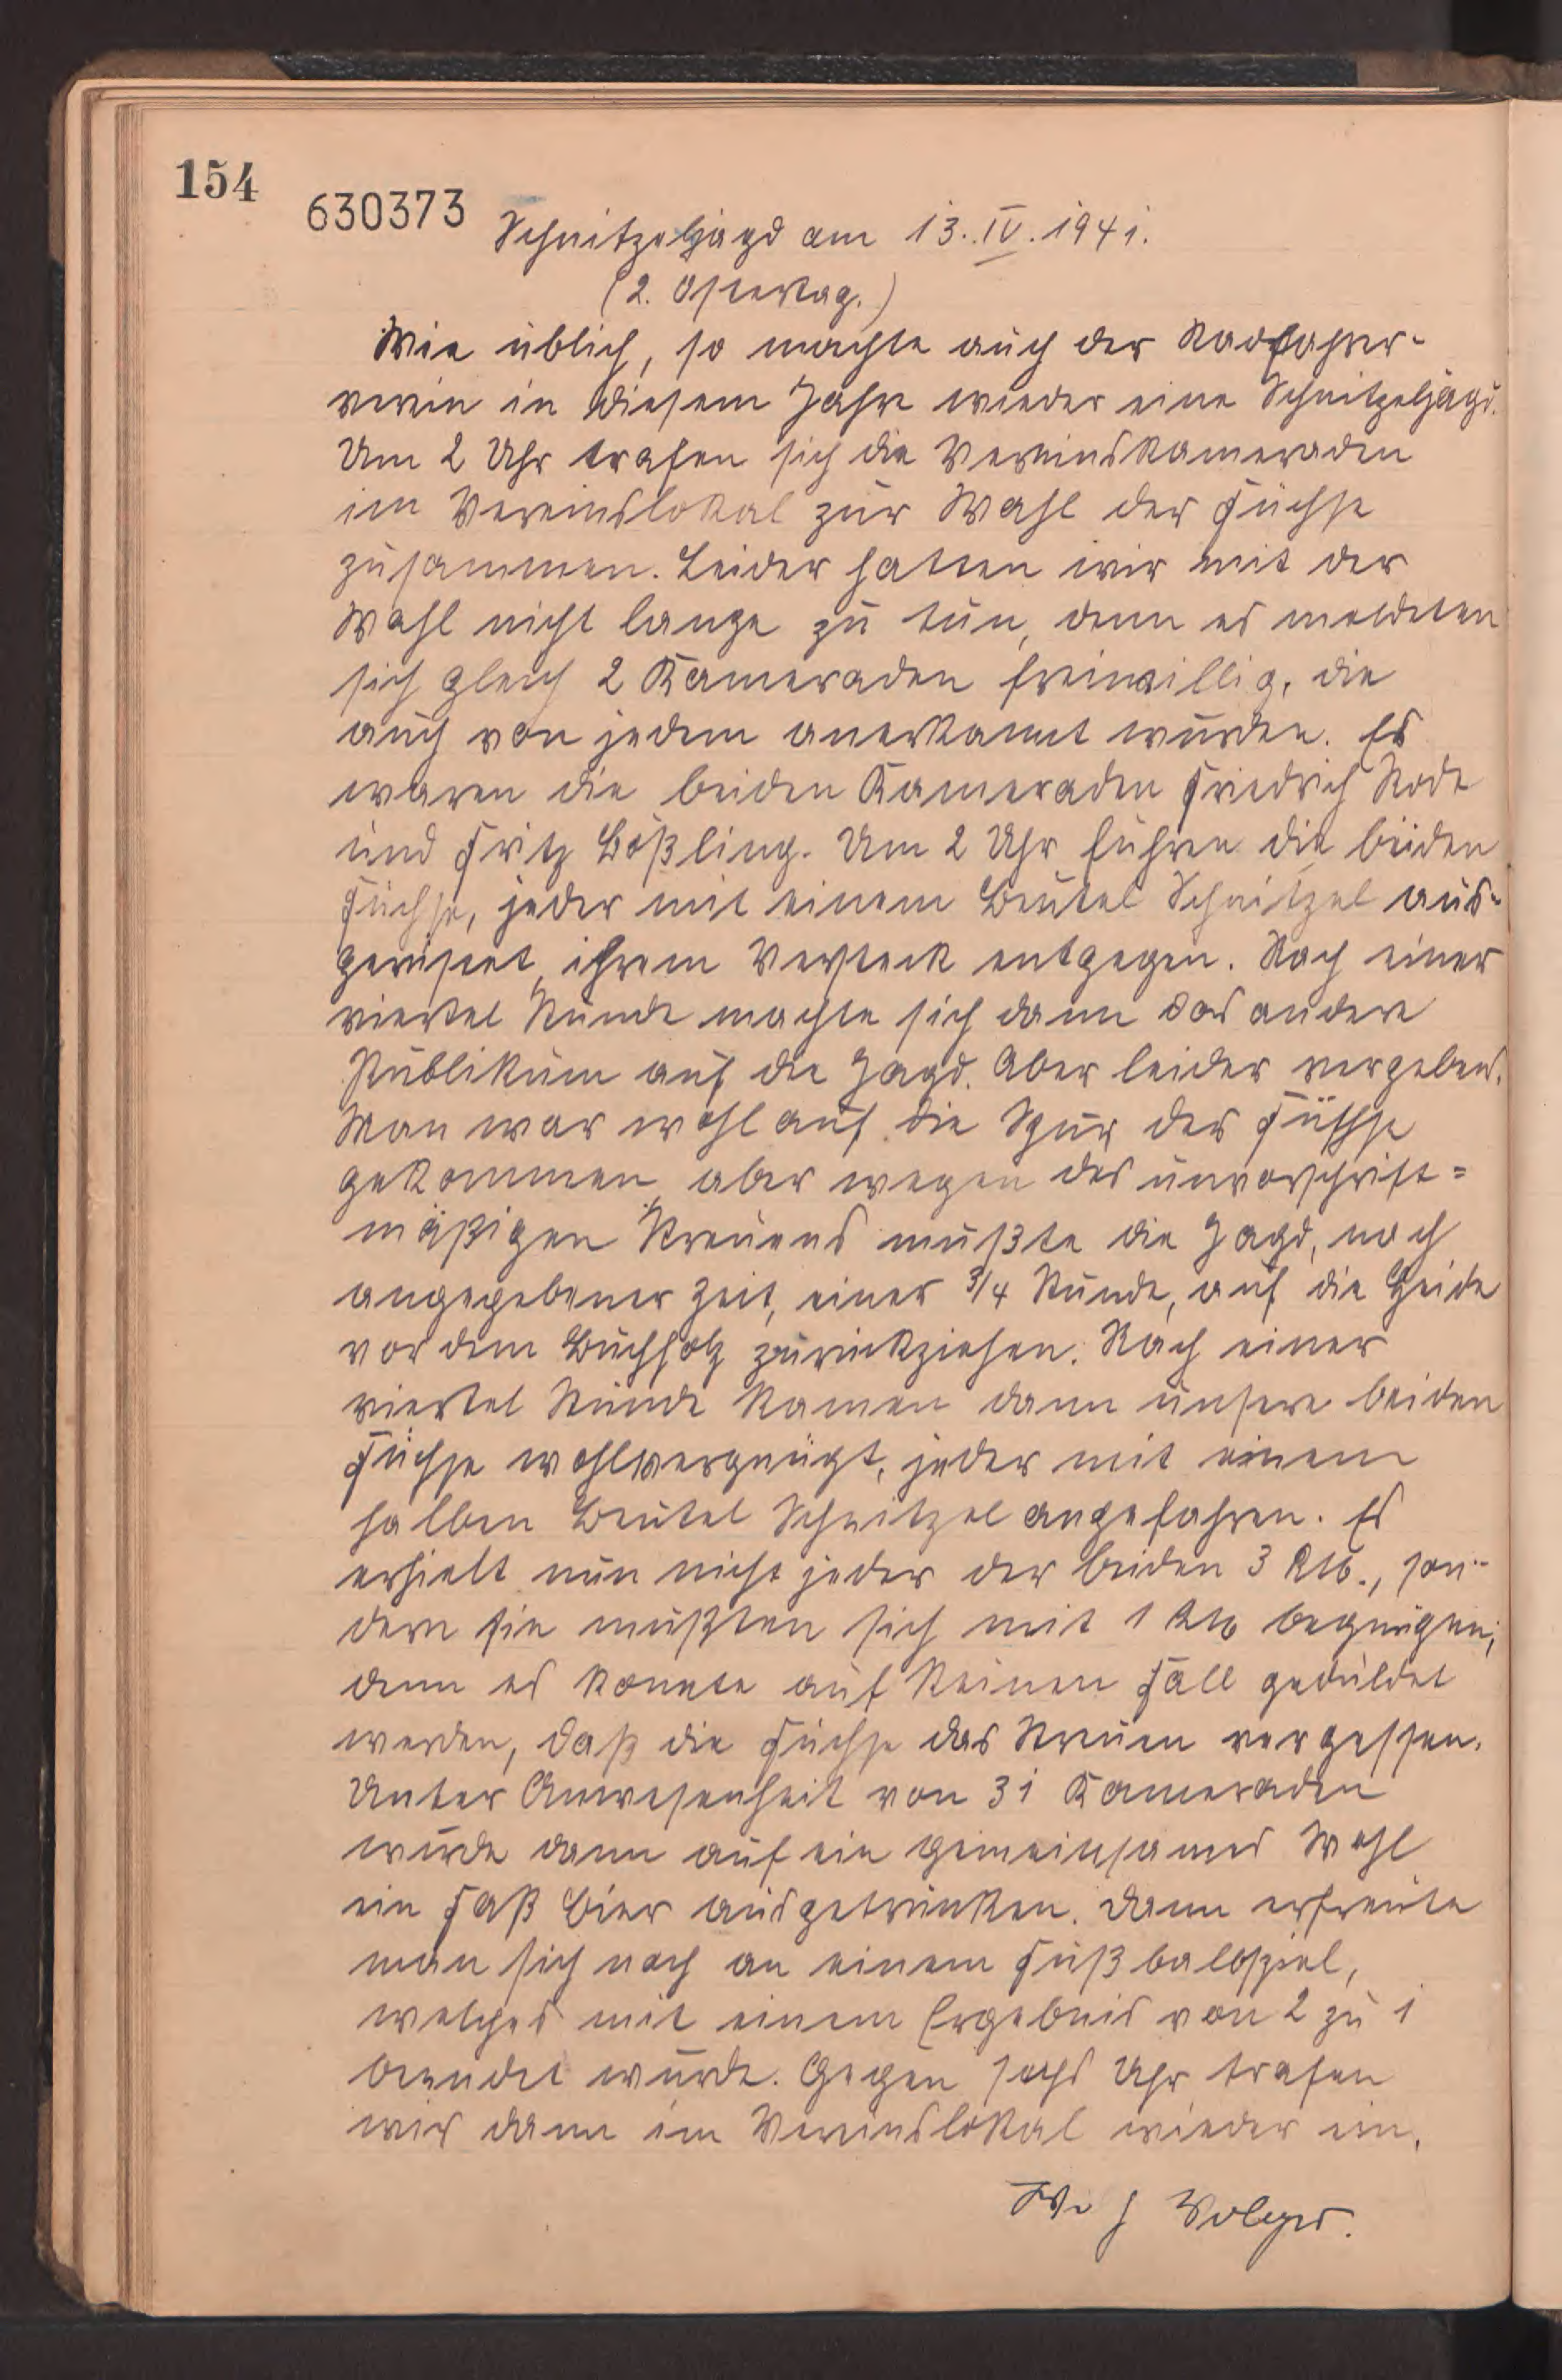 154
630373
Schnitzeljagd am 13. IV. 1941.
(2. Ostertag.)
Wie üblich, so machte auch der Radfahrer-
verein in diesem Jahre wieder eine Schnitzeljagd.
Um 2 Uhr trafen sich die Vereinskameraden
im Vereinslokal zur Wahl der Füchse
zusammen. Leider hatten wir mit der
Wahl nicht lange zu tun, denn es meldeten
sich gleich 2 Kameraden freiwillig, die
auch von jedem anerkannt wurden. Es
waren die beiden Kameraden Friedrich Rode
und Fritz Bößling. Um 2 Uhr fuhren die beiden
Füchse, jeder mit einem Beutel Schnitzel aus-
gerüstet, ihrem Versteck entgegen. Nach einer
viertel Stunde machte sich dann das andere
Publikum auf die Jagd. Aber leider vergebens.
Man war wohl auf die Spur der Füchse
gekommen aber wegen des unvorschrift=
mäßigen Streuens mußte die Jagd, nach
angegebener Zeit, einer 3/4 Stunde, auf die Heide
vor dem Buchholz zurückziehen. Nach einer
viertel Stunde kamen dann unsere beiden
Füchse wohlvergnügt, jeder mit einem
halben Beutel Schnitzel angefahren. Es
erhielt nun nicht jeder der beiden 3 RM., son-
dern sie mußten sich mit 1 RM begnügen,
denn es konnte auf keinen Fall geduldet
werden, daß die Füchse das Streuen vergessen.
Unter Anwesenheit von 31 Kameraden
wurde dann auf ein gemeinsames Wohl
ein Faß Bier ausgetrunken. Dann erfreute
man sich noch an einem Fußballspiel,
welches mit einem Ergebnis von 2 zu 1
beendet wurde. Gegen sechs Uhr trafen
wir dann im Vereinslokal wieder ein.
Volger.